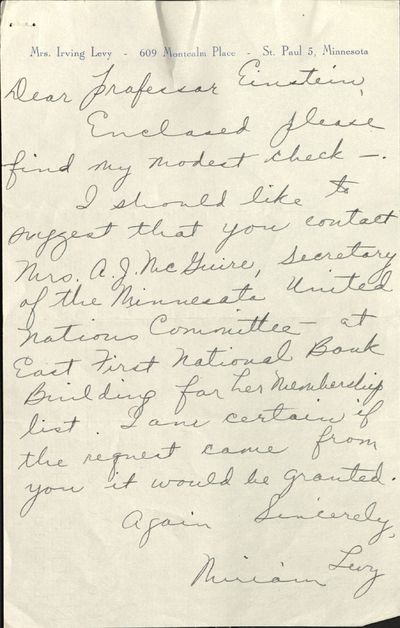 Mrs. Irving Levy - 609 Montcalm Place - St. Paul 5, Minnesota
Dear Professor Einstein,
Enclosed please
find my modest check —.
I should like to
suggest that you contact
Mrs. A. J. McGuire, Secretary
of the Minnesota United
Nations Committee — at
East First National Bank
Building for her membership
list. I am certain if
the request came from
you it would be granted.
Again Sincerely,
Miriam Levy